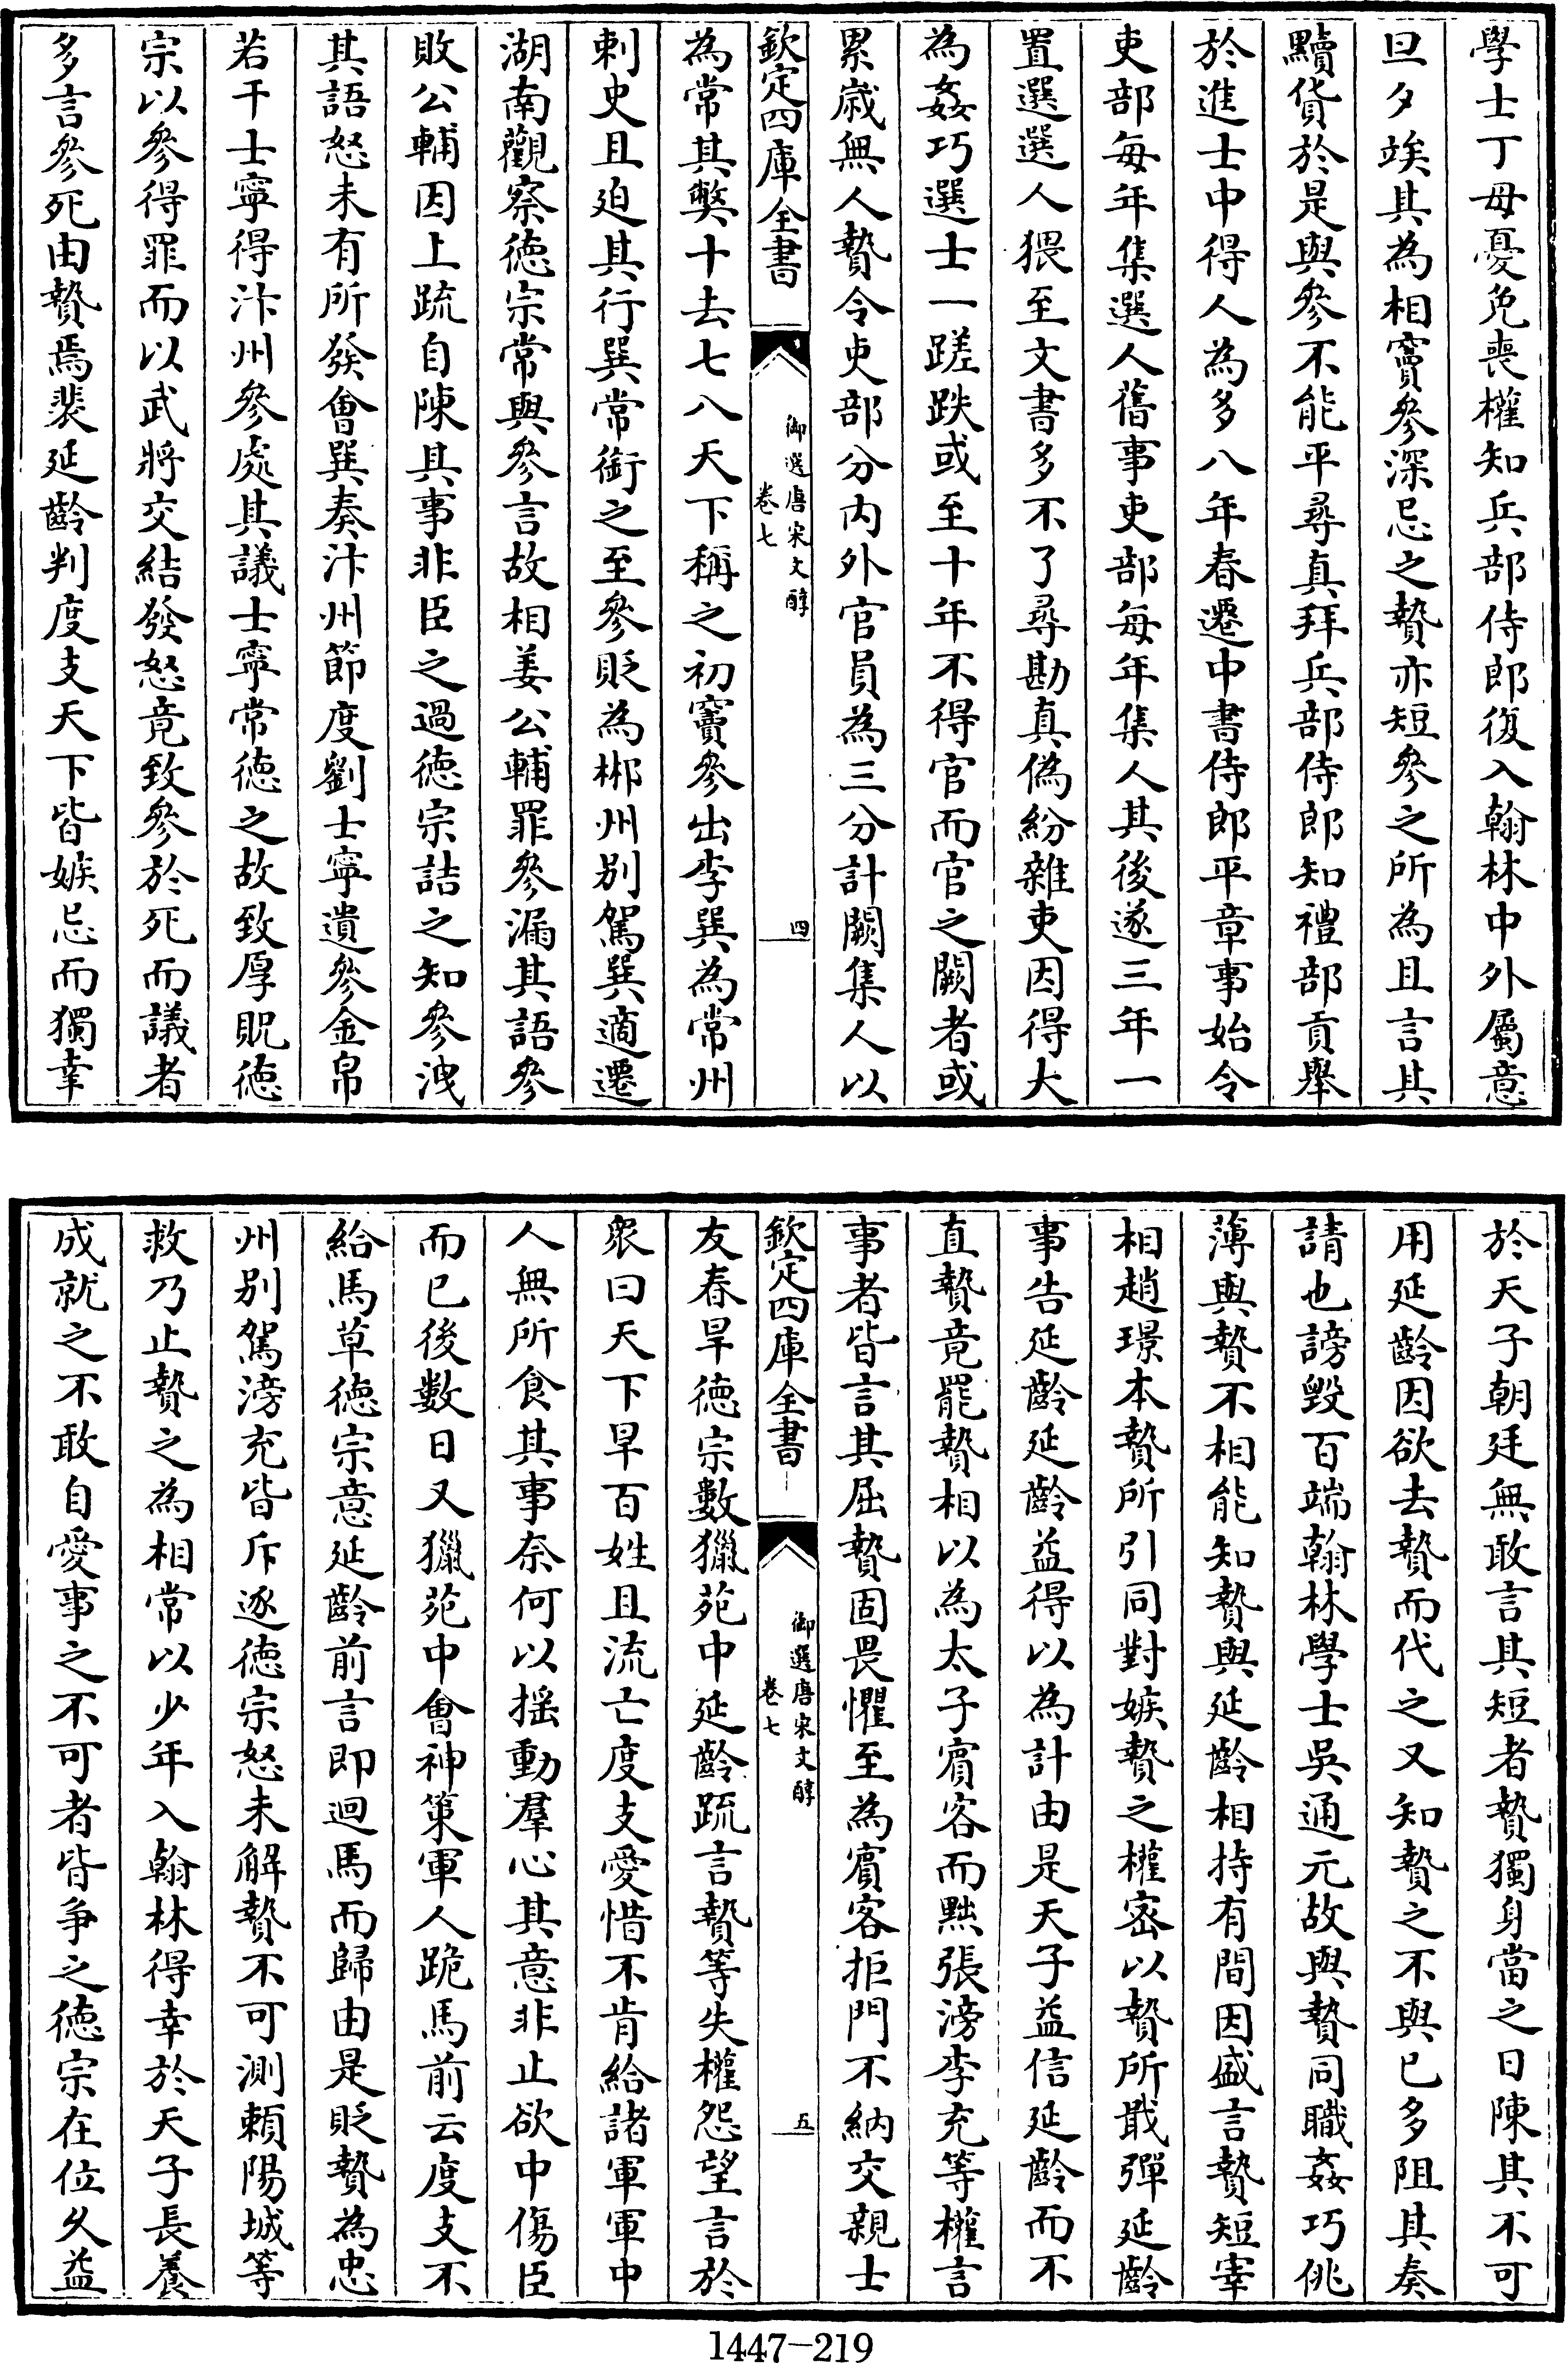 學士丁母憂免喪權知兵部侍郎復入翰林中外屬意
旦夕竢其為相竇參深忌之贄亦短參之所為且言其
黷貨於是與參不能平尋真拜兵部侍郎知禮部貢舉
於進士中得人為多八年春遷中書侍郎平章事始令
吏部每年集選人舊事吏部每年集人其後遂三年一
置選選人猥至文書多不了尋勘真偽紛雜吏因得大
為姦巧選士一蹉跌或至十年不得官而官之闕者或
累歲無人贄令吏部分內外官員為三分計闕集人以
欽定四庫全書
御選唐宋文醇
卷七
四
為常其弊十去七八天下稱之初竇參出李巽為常州
刺史且迫其行巽常銜之至參貶為郴州別駕巽適遷
湖南觀察德宗常與參言故相姜公輔罪參漏其語參
敗公輔因上疏自陳其事非臣之過德宗詰之知參洩
其語怒未有所發會巽奏汴州節度劉士寧遺參金帛
若干士寧得汴州參處其議士寧常德之故致厚貺德
宗以參得罪而以武將交結發怒竟致參於死而議者
多言參死由贄焉裴延齡判度支天下皆嫉忌而獨幸
於天子朝廷無敢言其短者贄獨身當之日陳其不可
用延齡因欲去贄而代之又知贄之不與已多阻其奏
請也謗毀百端翰林學士吳通元故與贄同職姦巧佻
薄與贄不相能知贄與延齡相持有間因盛言贄短宰
相趙璟本贄所引同對嫉贄之權密以贄所戢彈延齡
事告延齡延齡益得以為計由是天子益信延齡而不
直贄竟罷贄相以為太子賓客而黜張滂李充等權言
事者皆言其屈贄固畏懼至為賓客拒門不納交親士
欽定四庫全書
御選唐宋文醇
卷七
五
友春旱德宗數獵苑中延齡疏言贄等失權怨望言於
衆曰天下旱百姓且流亡度支愛惜不肯給諸軍軍中
人無所食其事奈何以揺動羣心其意非止欲中傷臣
而已後數日又獵苑中會神策軍人跪馬前云度支不
給馬草德宗意延齡前言即迴馬而歸由是貶贄為忠
州別駕滂充皆斥逐德宗怒未解贄不可測賴陽城等
救乃止贄之為相常以少年入翰林得幸於天子長養
成就之不敢自愛事之不可者皆爭之德宗在位久益
1447-219